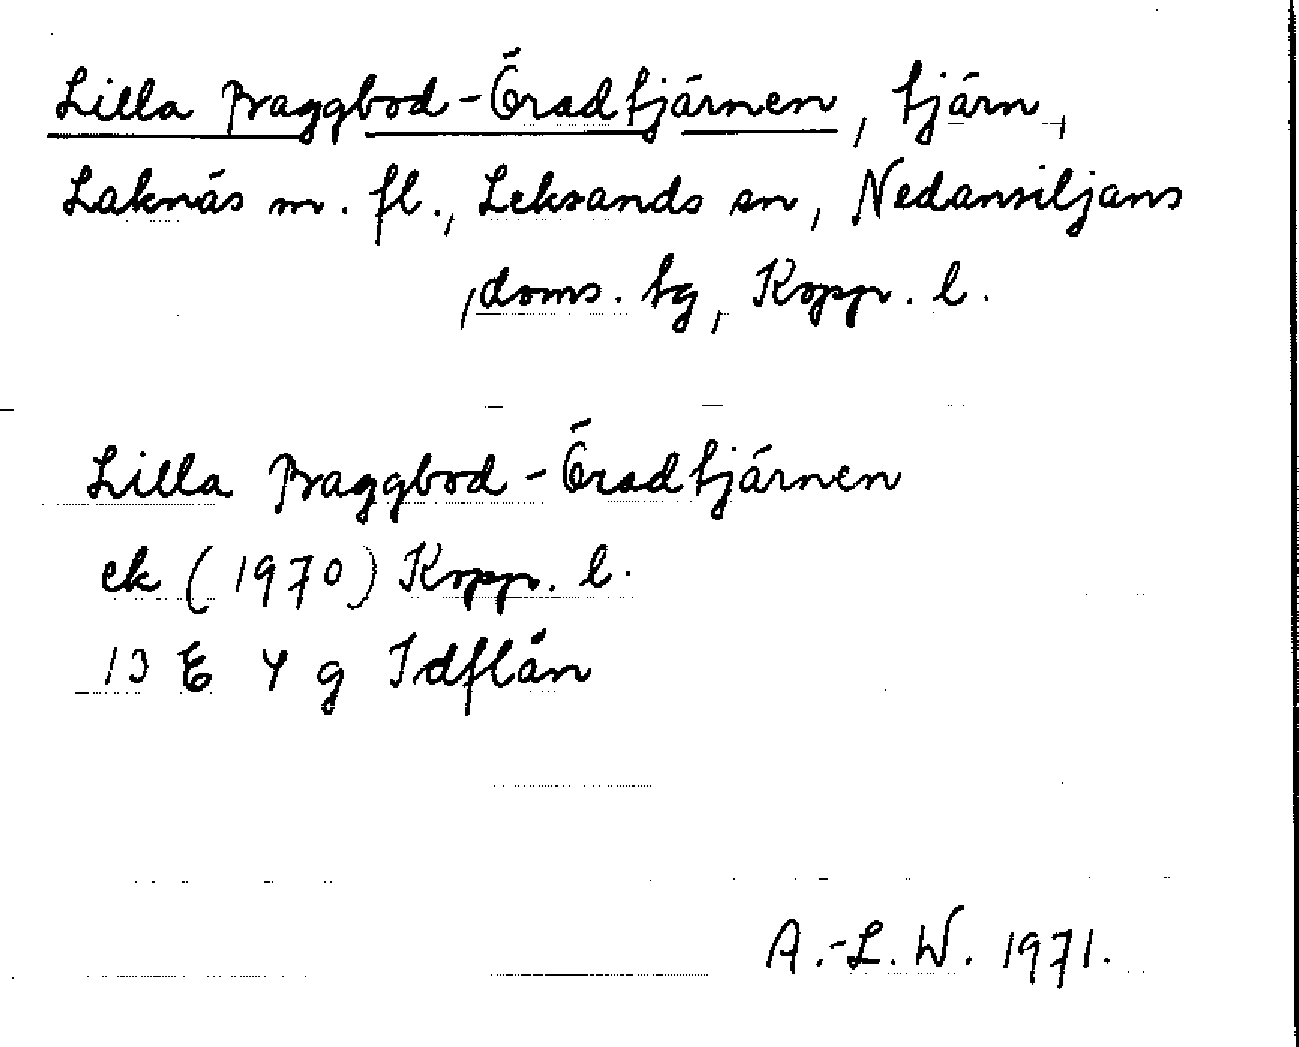 Lilla Braggbod-Öradtjärnen, tjärn,
Laknäs m. fl., Leksands sn, Nedansiljans
doms. tg, Kopp. l.
Lilla Braggbod-Öradtjärnen
ek (1970) Kopp. l.
13 E 4 g Idflån
A.-L. W. 1971.